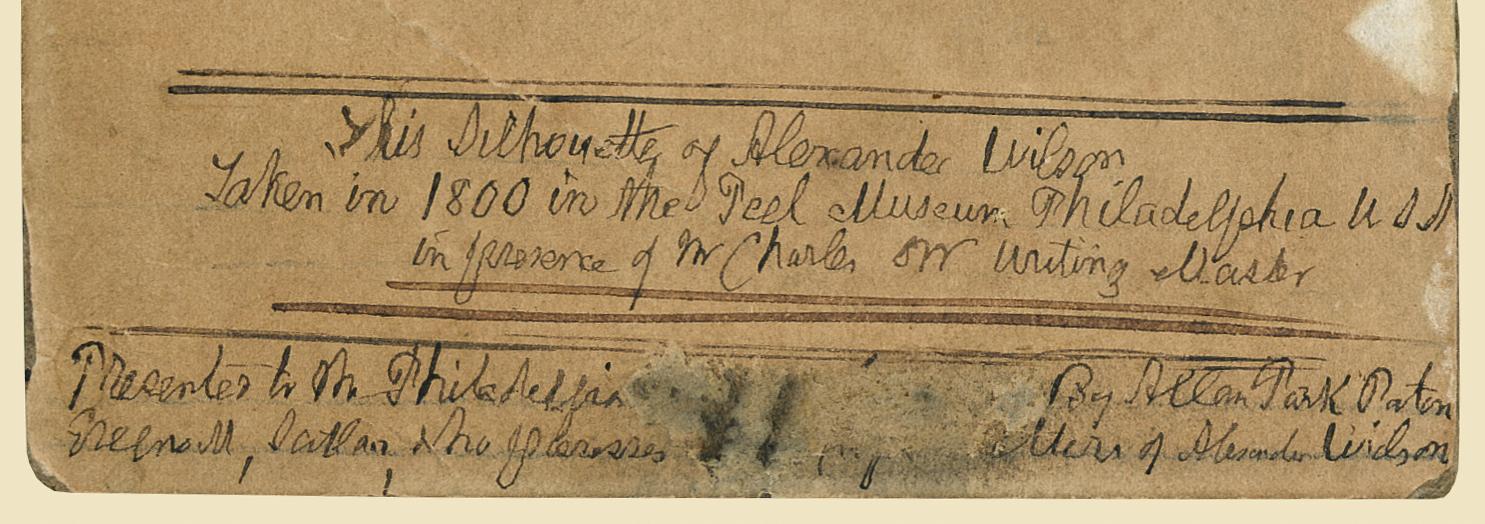 This Silhouette of Alexander Wilson
Taken in 1800 in the Peel Museum Philadelphia U S A
in presence of Mr Charles Orr Writing Master
Presented to the Philadelphia By Allan Park Paton
who possesses of Alexander Wilson